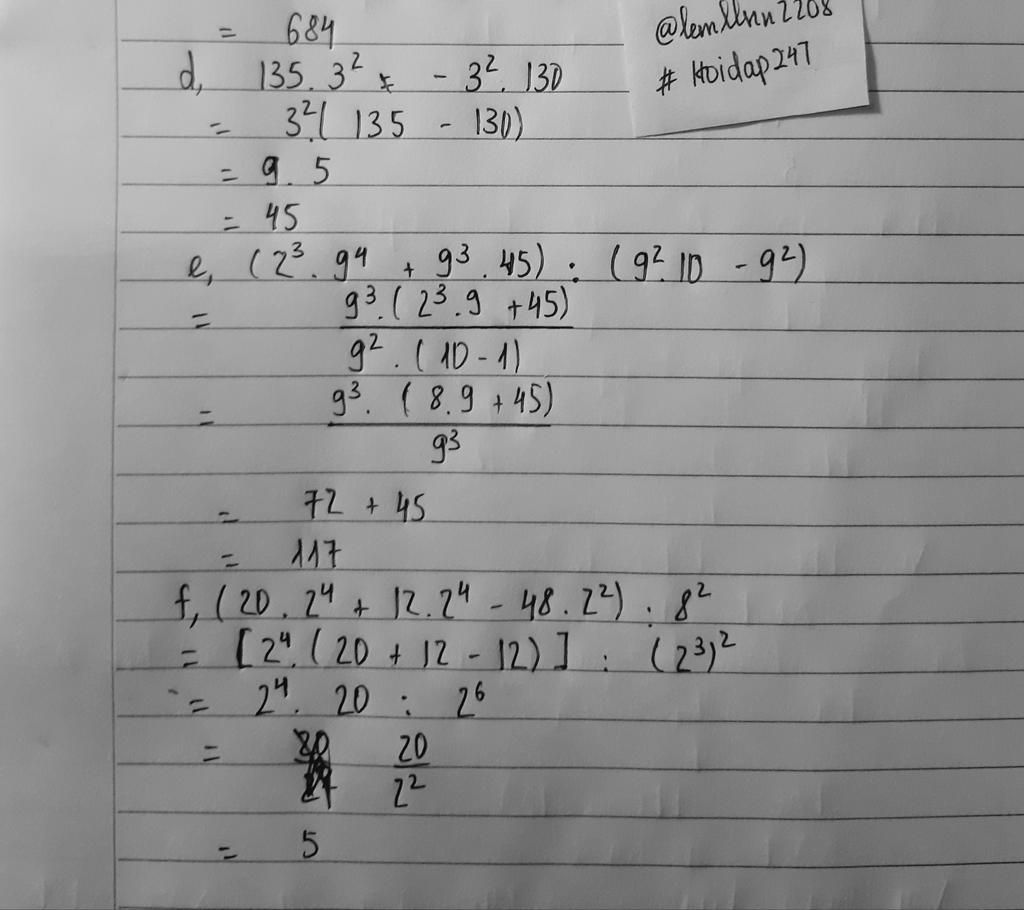 = 684
@lemllnn2208
# Hoidap247
d, 135. 3² - 3². 130
= 3².( 135 - 130)
= 9. 5
= 45
e, (2³. 9⁴ + 9³. 45) : (9². 10 - 9²)
= 9³. ( 2³. 9 + 45)
9². ( 10 - 1)
= 9³. ( 8. 9 + 45)
9³
= 72 + 45
= 117
f, (20. 2⁴ + 12. 2⁴ - 48. 2²) : 8²
= [2⁴. ( 20 + 12 - 12) ] : (2³)²
= 2⁴. 20 : 2⁶
= 20
2²
= 5